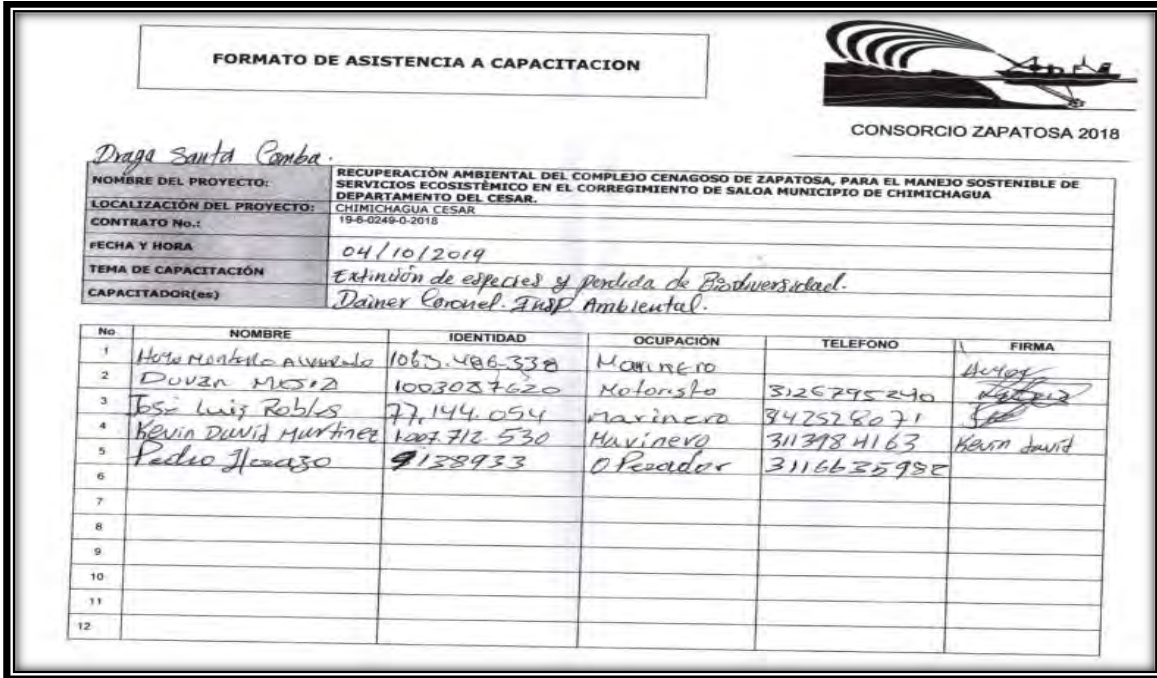 FORMATO DE ASISTENCIA A CAPACITACION
CONSORCIO ZAPATOSA 2018
Draga Santa Comba.
NOMBRE DEL PROYECTO: RECUPERACIÒN AMBIENTAL DEL COMPLEJO CENAGOSO DE ZAPATOSA, PARA EL MANEJO SOSTENIBLE DE
SERVICIOS ECOSISTÈMICO EN EL CORREGIMIENTO DE SALOA MUNICIPIO DE CHIMICHAGUA
DEPARTAMENTO DEL CESAR.
LOCALIZACIÓN DEL PROYECTO: CHIMICHAGUA CESAR
CONTRATO No.: 19-6-0249-0-2018
FECHA Y HORA 04/10/2019
TEMA DE CAPACITACIÓN Extinción de especies y perdida de Biodiversidad.
CAPACITADOR(es) Dainer Coronel. Insp Ambiental.
No NOMBRE IDENTIDAD OCUPACIÓN TELEFONO FIRMA
1 Alvarado 1063.486.338 Marinero
2 Duvan 1003087620 Motorista 3126795240
3 José Luis Robles 77.144.054 Marinero 342528071
4 Kevin David Martinez 1007.712.530 Marinero 3113984163 Kevin david
5 Pedro 9138933 Operador 3116635982
6
7
8
9
10
11
12